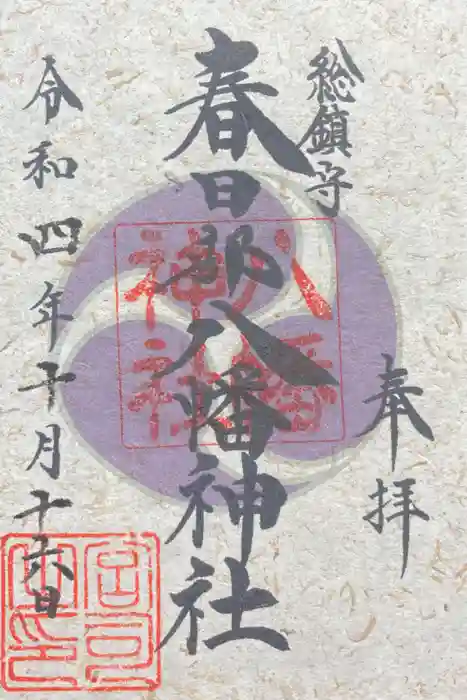 総鎮守
奉拝
春日部八幡神社
令和四年十月十六日